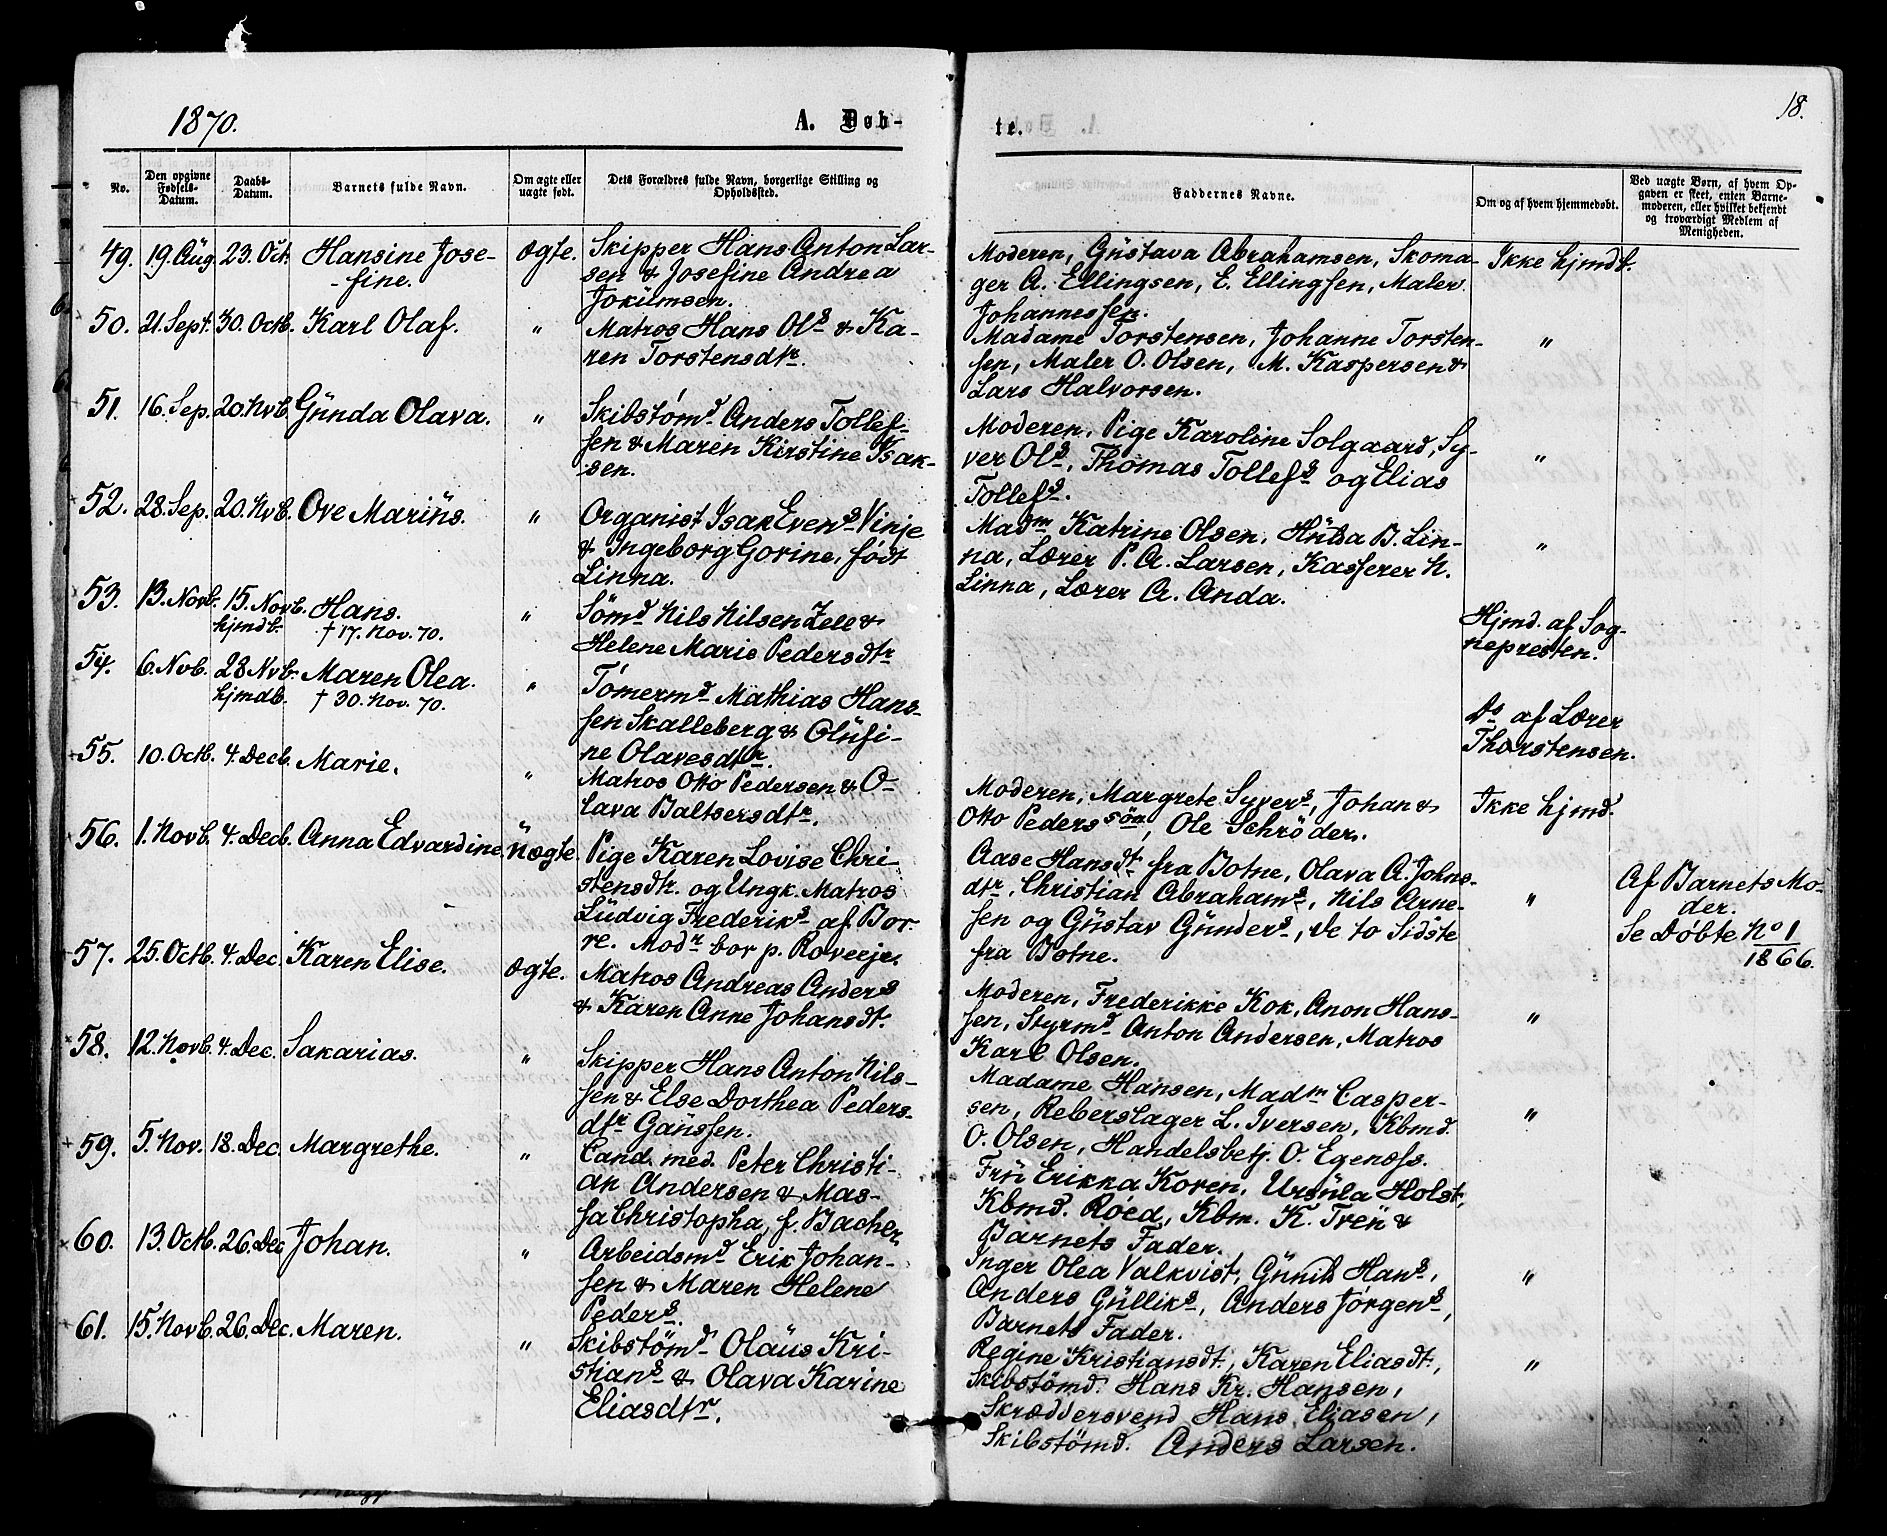 1870.
A. Døb-
te.
18.
No.
Den opgivne Fødsels-Datum.
Daabs-Datum.
Barnets fulde Navn.
Om ægte eller uægte født.
Dets Forældres fulde Navn, borgerlige Stilling og Opholdssted.
Faddernes Navne.
Om og af hvem hjemmedøbt.
Ved uægte Børn, af hvem Op-
gaven er skeet, enten Barne-
moderen, eller hvilket bekjendt
og troværdigt Medlem af
Menigheden.
49. 19. Aug. 23. Oct. Hansine Jose-
-fine.
ægte.
Skipper Hans Anton Lar-
sen & Josefine Andrea
Jokumsen.
Moderen, Gustava Abrahamsen, Skoma-
ger A. Ellingsen, E. Ellingsen, Maler
Johannessen.
Ikke hjmdt.
50. 21. Sept. 30. Octb. Karl Olaf.
"
Matros Hans Ols & Ka-
ren Torstensdtr.
Madame Torstensen, Johanne Torsten-
sen, Maler O. Olsen, M. Kaspersen &
Lars Halvorsen.
"
51. 16. Sep. 20. Nvb. Gunda Olava.
"
Skibstømd Anders Tollef-
sen & Maren Kirstine Isak-
sen.
Moderen, Pige Karoline Solgaard, Sy-
ver Ols, Thomas Tollefs og Elias
Tollefs.
"
52. 28. Sep. 20. Nvb. Ove Marius.
"
Organist Isak Evens Vinje
& Ingeborg Gorine, født
Linna.
Madm Katrine Olsen, Hulda B. Lin-
na, Lærer P. A. Larsen, Kasserer N.
Linna, Lærer A. Anda.
"
53. 13. Novb. 15. Novb. Hans.
hjmdb. † 17. Nov. 70.
"
Sømd Nils Nilsen Zele &
Helene Marie Pedersdtr
Hjmd. af Sog-
nepresten.
54. 6. Nvb. 28 Nvb. Maren Olea.
hjmdb. † 30. Nov. 70.
"
Tømermd Mathias Hans-
sen Skalleberg & Olufi-
ne Olavesdtr.
Do af Lærer
Thorstensen.
55. 10. Octb. 4. Decb. Marie.
"
Matros Otto Pedersen & O-
lava Baltsersdtr.
Moderen, Margrete Syvers, Johan &
Otto Peders søn, Ole Schrøder.
Ikke hjmd.
56. 1. Novb. 4. Decb. Anna Edvardine.
uægte.
Pige Karen Lovise Chri-
stensdtr. og Ungk. Matros
Ludvig Frederiks af Bor-
re. Modr bor p. Roveeje.
Aase Hansdt. fra Botne, Olava A. Johns-
dtr, Christian Abrahams, Nils Arne-
sen og Gustav Gunders, de to Sidste
fra Botne.
"
Af Barnets Mo-
der.
Se Døbte No 1
1866.
57. 25. Octb. 4. Dec. Karen Elise.
ægte.
Matros Andreas Anders
& Karen Anne Johansdt.
Moderen, Frederikke Kok, Anon Hans-
sen, Styrmd Anton Andersen, Matros
Karl Olsen.
"
58. 12. Novb. 4. Dec. Sakarias.
"
Skipper Hans Anton Nils-
sen & Else Dorthea Peders-
dtr Gaussen.
Madame Hansen, Madm Casper-
sen, Reberslager L. Iversen, Kbmd.
O. Olsen, Handelsbetj. O. Egenæss.
"
59. 5. Nov. 18. Dec. Margrethe.
"
Cand. med. Peter Christi-
an Andersen & Mas-
sa Christopha, f. Bacher.
Fru Erikka Koren, Ursula Holst,
Kbmd. Røed, Kbm. K. Treu &
Barnets Fader.
60. 13. Octb. 26. Dec Johan.
"
Arbeidsmd Erik Johan-
sen & Maren Helene
Peders.
Inger Olea Valkvist, Gunild Hans,
Anders Gulliks, Anders Jørgens,
Barnets Fader.
"
61. 15. Novb. 26. Dec. Maren.
"
Skibstømd Olaus Kri-
stians & Olava Karine
Eliasdtr.
Regine Kristiansdt., Karen Eliasdt.,
Skibstømd. Hans Kr. Hansen,
Skræddersvend Hans Eliasen,
Skibstømd. Anders Larsen.
"